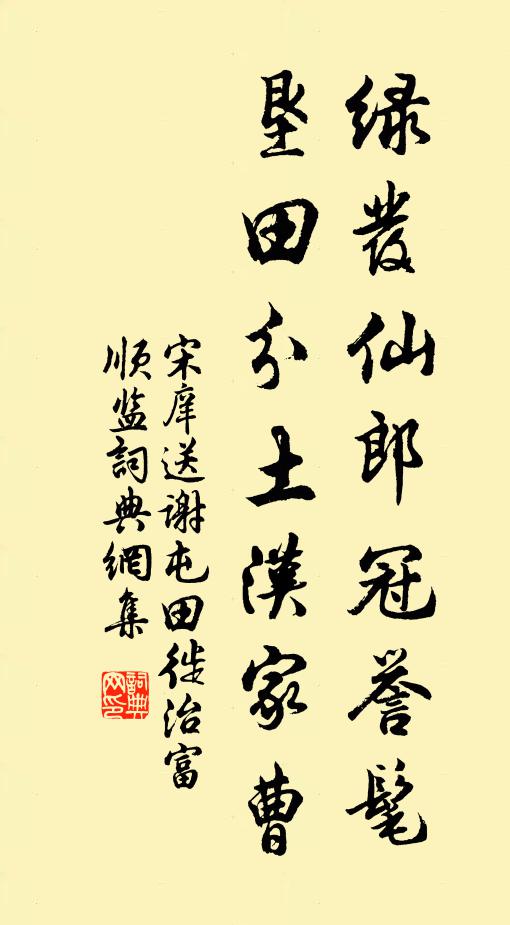 绿发仙郎冠誉髦
垦田分土汉家曹
宋庠送谢屯田徙治富
顺监词典網集
詞典
网印